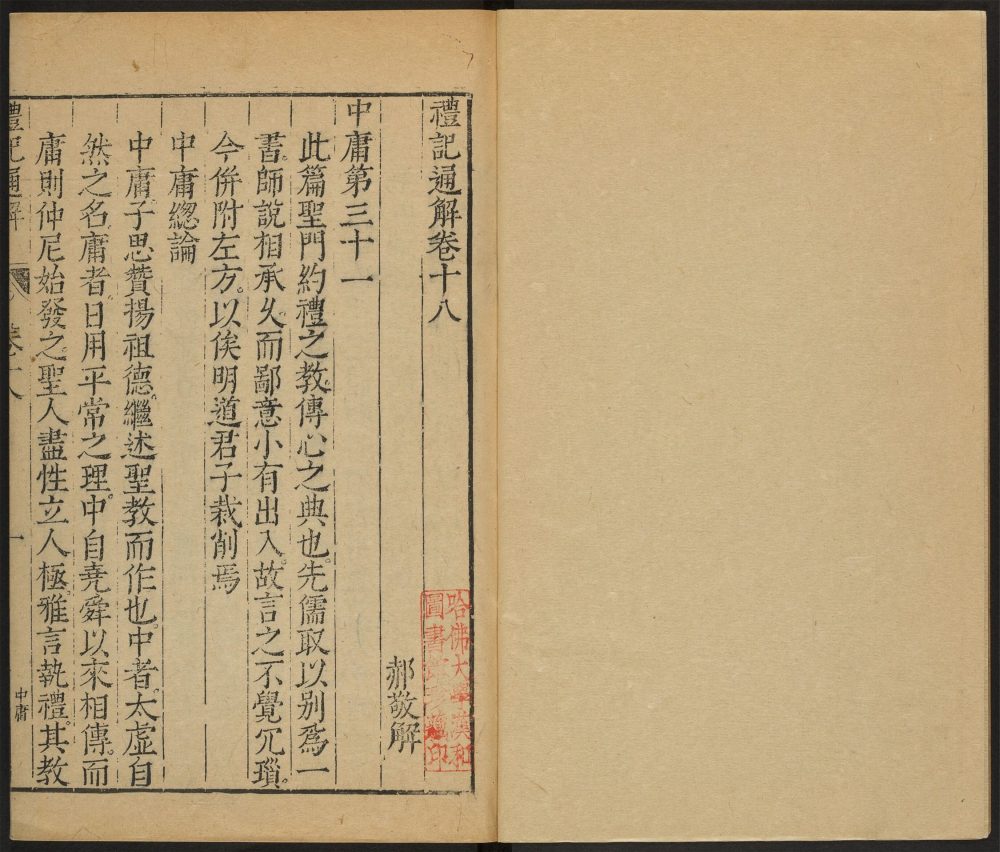 禮記通解卷十八
郝敬解
中庸第三十一
此篇聖門約禮之教。傳心之典也。先儒取以別爲一
書。師說相承久。而鄙意小有出入。故言之不覺冗瑣。
今併附左方。以俟明道君子裁削焉
中庸總論
中庸。子思贊揚祖德。繼述聖教而作也。中者。太虛自
然之名。庸者。日用平常之理。中自堯舜以來相傳。而
庸則仲尼始發之。聖人盡性立人極。雅言執禮。其教
禮記通解
卷十八
一
中庸
哈佛大學漢和
圖書館珍藏印